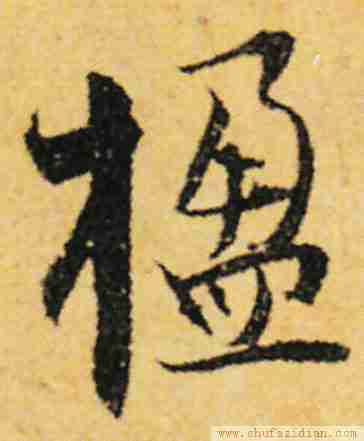 楹
www.shufazidian.com